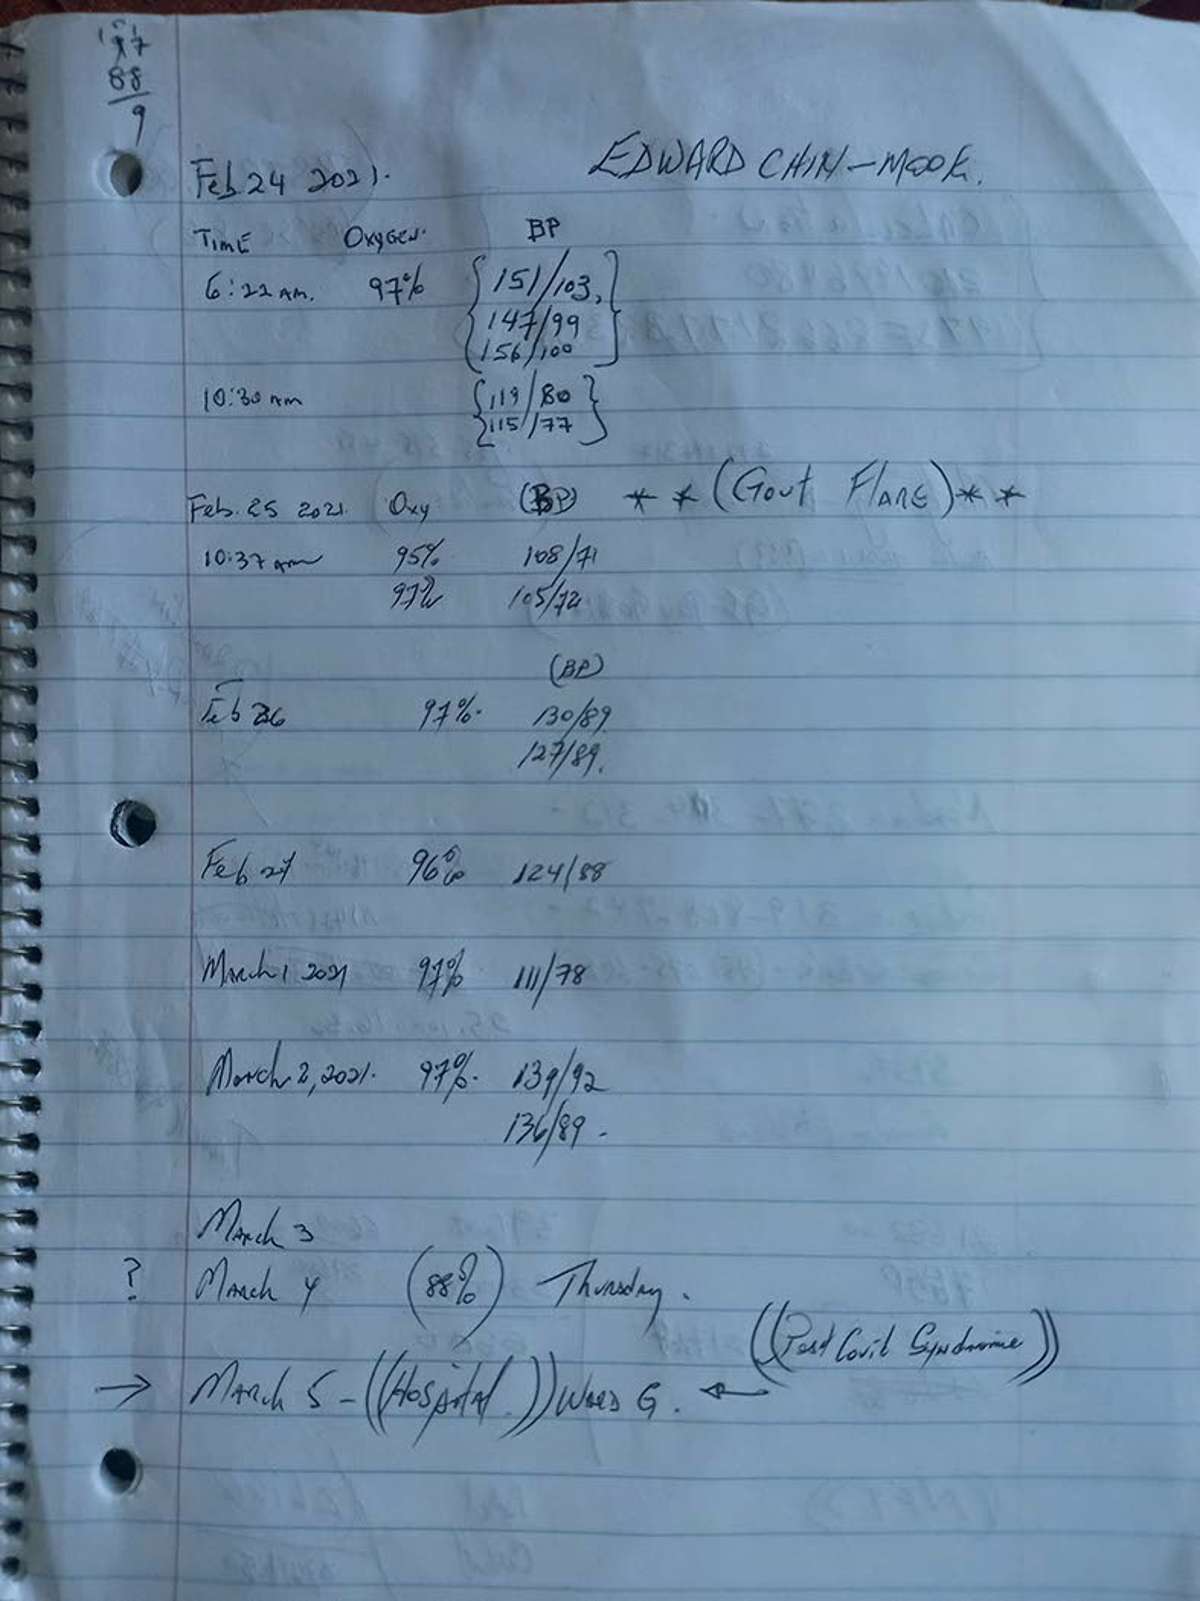 97
88
9
EDWARD CHIN-MOOK.
Feb 24 2021.
TIME OXYGEN. BP
6:22 AM. 97% {151/103,
147/99
156/100}
10:30 am {119/80
115/77}
Feb. 25 2021. Oxy (BP) * * (Gout FLARE) * *
10:37 am 95% 108/71
97% 105/72
(BP)
Feb 26 97%. 130/89.
127/89.
Feb 27 96% 124/88
March 1 2021 97% 111/78
March 2, 2021. 97%. 139/92
136/89.
March 3
? March 4 (88%) Thursday.
((Post Covit Syndrome))
→ March 5 - ((Hospital.)) WARD G. ←